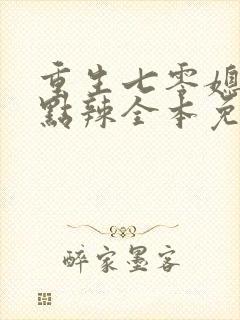 重生七零媳
點辣全本免
醉家墨客